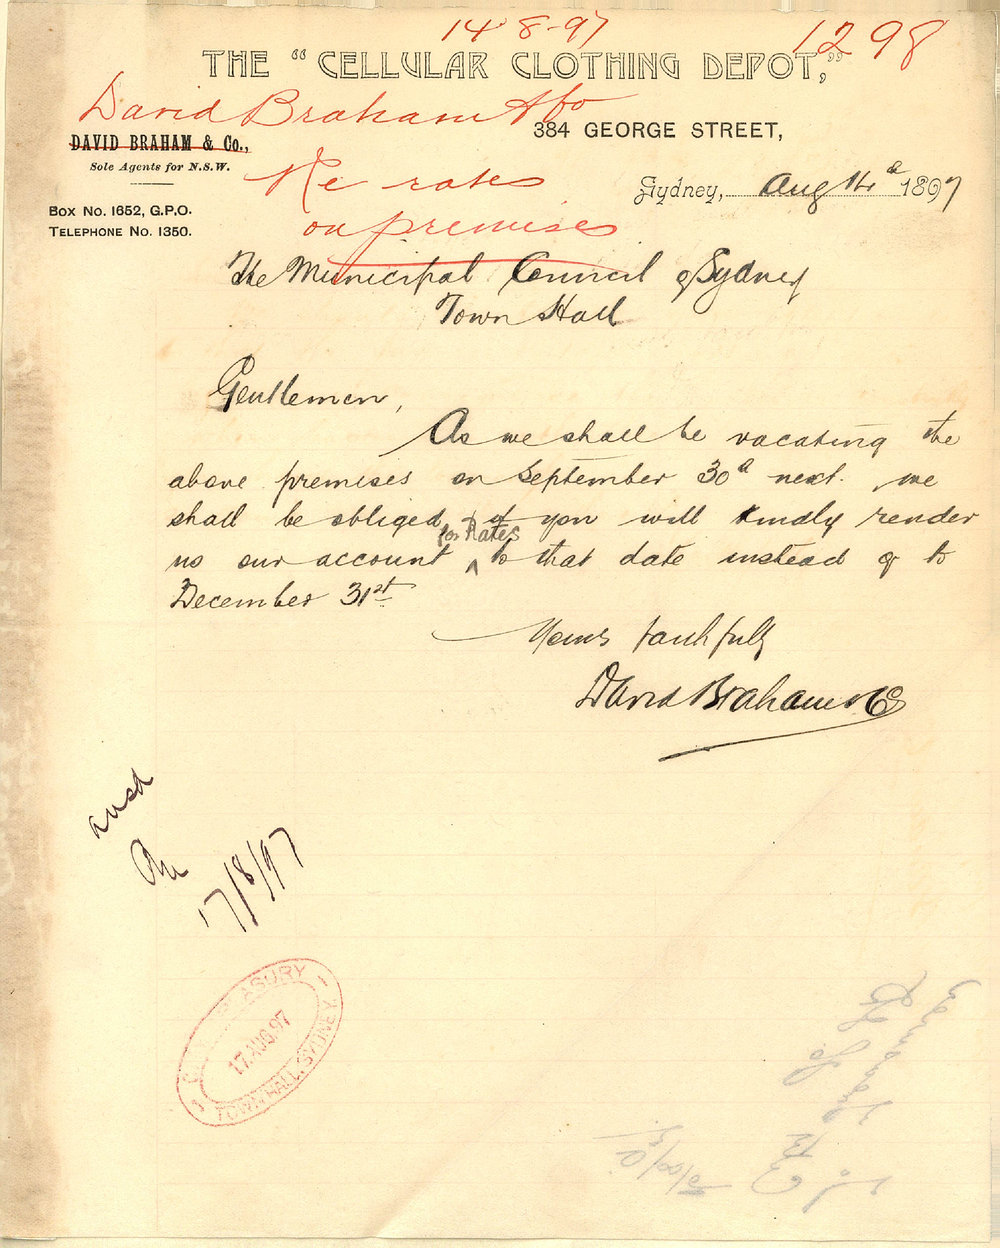 14-8-97
1298
THE "CELLULAR CLOTHING DEPOT,"
David Braham & Co
DAVID BRAHAM & Co.,
384 GEORGE STREET,
Sole Agents for N.S.W.
Re rates
on premises
Sydney, Aug 14th 1897
BOX No. 1652, G.P.O.
TELEPHONE No. 1350.
The Municipal Council of Sydney
Town Hall
Gentlemen,
As we shall be vacating the
above premises on September 30th next. we
shall be obliged if you will kindly render
for Rates
us our account ^ to that date instead of to
December 31st
Yours faithfully
David Braham & Co
ansd
17/8/97
TREASURY
17.AUG.97
TOWN HALL, SYDNEY.